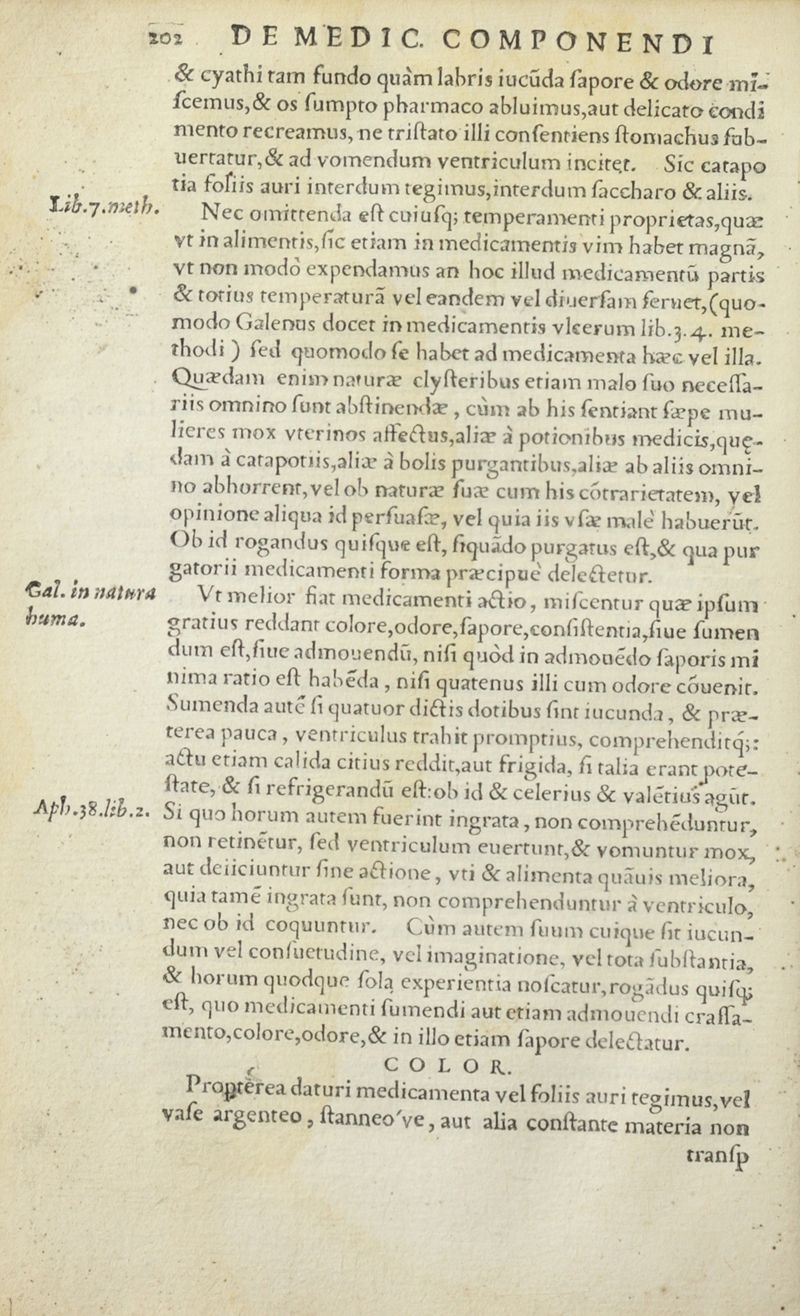 202 DE MEDIC. COMPONENDI
& cyathi tam fundo quàm labris iucūda ſapore & odore mi-
ſcemus,& os ſumpto pharmaco abluimus,aut delicato condi
mento recreamus, ne triſtato illi conſentiens ſtomachus ſub-
uertatur,& ad vomendum ventriculum incitet. Sic catapo
tia foliis auri interdum tegimus,interdum ſaccharo & aliis.
Lib.7.meth.
Nec omittenda eſt cuiuſq; temperamenti proprietas,quæ
vt in alimentis,ſic etiam in medicamentis vim habet magnā,
vt non modò expendamus an hoc illud medicamentū partis
& totius temperaturā vel eandem vel diuerſam ſeruet,(quo-
modo Galenus docet in medicamentis vlcerum lib.3.4. me-
thodi ) ſed quomodo ſe habet ad medicamenta hæc vel illa.
Quædam enim naturæ clyſteribus etiam malo ſuo neceſſa-
riis omnino ſunt abſtinendæ , cùm ab his ſentiant ſæpe mu-
lieres mox vterinos affectus,aliæ à potionibus medicis,quę-
dam à catapotiis,aliæ à bolis purgantibus,aliæ ab aliis omni-
no abhorrent,vel ob naturæ ſuæ cum his cōtrarietatem, vel
opinione aliqua id perſuaſæ, vel quia iis vſæ malè habuerūt.
Ob id rogandus quiſque eſt, ſiquādo purgatus eſt,& qua pur
gatorii medicamenti forma præcipuè delectetur.
Gal. in natura
huma.
Vt melior fiat medicamenti actio, miſcentur quæ ipſum
gratius reddant colore,odore,ſapore,conſiſtentia,ſiue ſumen
dum eſt,ſiue admouendū, niſi quòd in admouēdo ſaporis mi
nima ratio eſt habēda , niſi quatenus illi cum odore cōuenit.
Sumenda autē ſi quatuor dictis dotibus ſint iucunda, & præ-
terea pauca , ventriculus trahit promptius, comprehenditq́;:
actu etiam calida citius reddit,aut frigida, ſi talia erant pote-
ſtate, & ſi refrigerandū eſt:ob id & celerius & valētius agūt.
Aph.38.lib.2.
Si quo horum autem fuerint ingrata, non comprehēduntur,
non retinētur, ſed ventriculum euertunt,& vomuntur mox,
aut deiiciuntur ſine actione, vti & alimenta quāuis meliora,
quia tamē ingrata ſunt, non comprehenduntur à ventriculo,
nec ob id coquuntur. Cùm autem ſuum cuique ſit iucun-
dum vel conſuetudine, vel imaginatione, vel tota ſubſtantia,
& horum quodque ſola experientia noſcatur,rogādus quiſq;
eſt, quo medicamenti ſumendi aut etiam admouendi craſſa-
mento,colore,odore,& in illo etiam ſapore delectatur.
COLOR.
Propterea daturi medicamenta vel foliis auri tegimus,vel
vaſe argenteo , ſtanneo've, aut alia conſtante materia non
tranſp